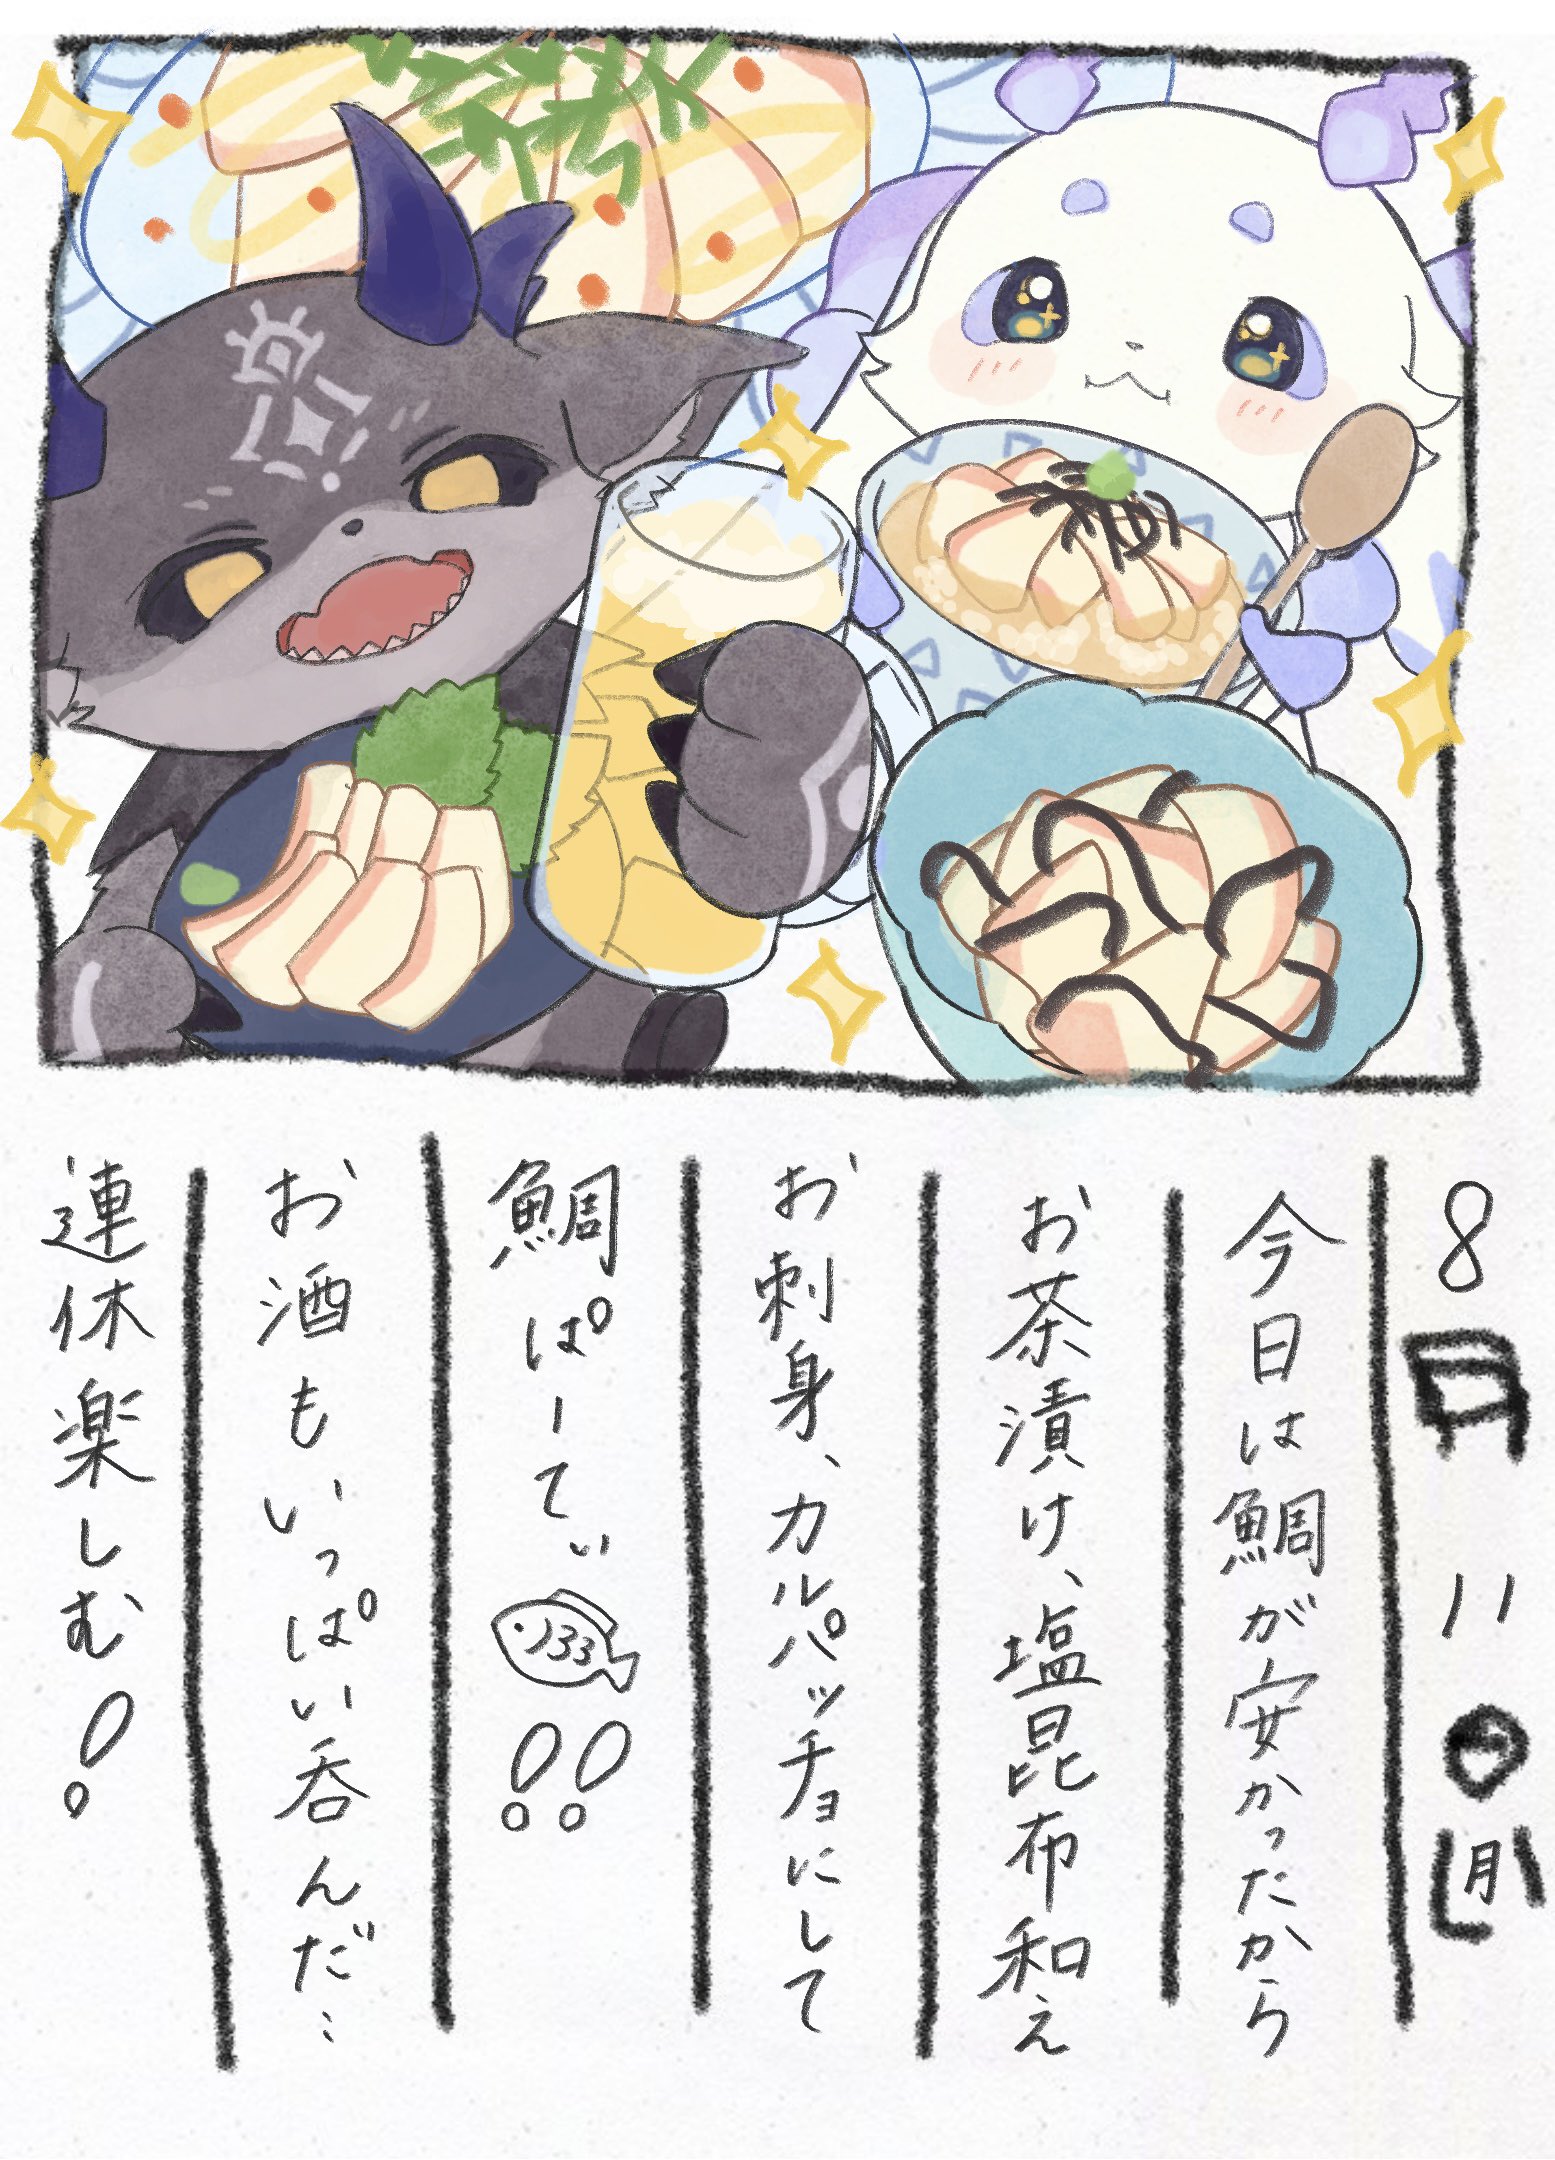 8月11日(月)
今日は鯛が安かったから
お茶漬け、塩昆布和え
お刺身、カルパッチョにして
鯛ぱーてぃ!!
お酒もいっぱい呑んだ…
連休楽しむ!